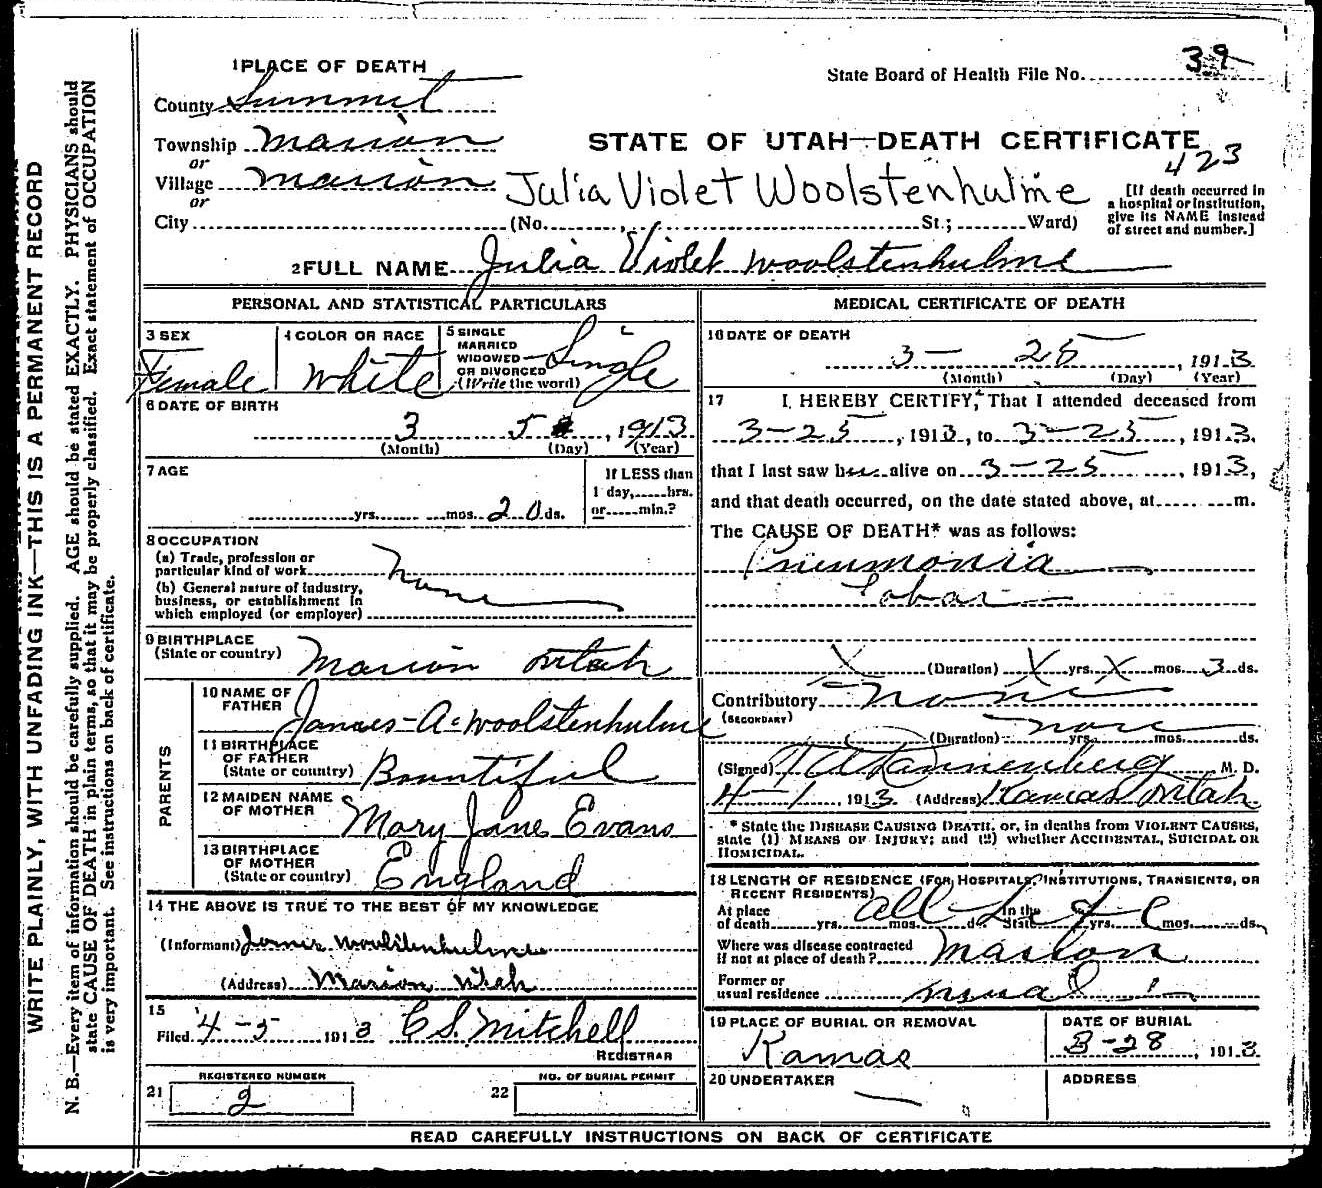 39
1 PLACE OF DEATH
State Board of Health File No.
County Summit
Township Marion
STATE OF UTAH—DEATH CERTIFICATE
or
423
Village Marion
Julia Violet Woolstenhulme
[If death occurred in a hospital or institution, give its NAME instead of street and number.]
or
City (No. , St.; Ward)
2 FULL NAME Julia Violet Woolstenhulme
PERSONAL AND STATISTICAL PARTICULARS
3 SEX
Female
4 COLOR OR RACE
White
5 SINGLE
MARRIED
WIDOWED
OR DIVORCED
(Write the word)
Single
6 DATE OF BIRTH
3 5 , 1913
(Month) (Day) (Year)
7 AGE
yrs. mos. 20 ds.
If LESS than
1 day, hrs.
or min.?
8 OCCUPATION
(a) Trade, profession or
particular kind of work
(b) General nature of industry,
business, or establishment in
which employed (or employer)
None
9 BIRTHPLACE
(State or country)
Marion Utah
PARENTS
10 NAME OF
FATHER
James A. Woolstenhulme
11 BIRTHPLACE
OF FATHER
(State or country)
Bountiful
12 MAIDEN NAME
OF MOTHER
Mary Jane Evans
13 BIRTHPLACE
OF MOTHER
(State or country)
England
14 THE ABOVE IS TRUE TO THE BEST OF MY KNOWLEDGE
(Informant) James Woolstenhulme
(Address) Marion Utah
15
Filed 4-5 1913 C S. Mitchell
REGISTRAR
REGISTERED NUMBER
21 2
NO. OF BURIAL PERMIT
22
MEDICAL CERTIFICATE OF DEATH
16 DATE OF DEATH
3 - 25 , 1913
(Month) (Day) (Year)
17 I HEREBY CERTIFY, That I attended deceased from
3-25 , 1913, to 3-25 , 1913,
that I last saw her alive on 3-25 , 1913,
and that death occurred, on the date stated above, at m.
The CAUSE OF DEATH* was as follows:
Pneumonia
Lobar
X (Duration) X yrs. X mos. 3 ds.
Contributory None
(SECONDARY)
(Duration) None yrs. mos. ds.
(Signed) Dannenberg M. D.
4-1 , 1913 (Address) Kamas Utah
* State the DISEASE CAUSING DEATH, or, in deaths from VIOLENT CAUSES,
state (1) MEANS OF INJURY; and (2) whether ACCIDENTAL, SUICIDAL OR
HOMICIDAL.
18 LENGTH OF RESIDENCE (FOR HOSPITALS, INSTITUTIONS, TRANSIENTS, OR
RECENT RESIDENTS)
At place
of death yrs. mos. ds. In the
State yrs. mos. ds.
all Life
Where was disease contracted
if not at place of death? Marion
Former or
usual residence usual
19 PLACE OF BURIAL OR REMOVAL
Kamas
DATE OF BURIAL
3-28 , 1913
20 UNDERTAKER
ADDRESS
READ CAREFULLY INSTRUCTIONS ON BACK OF CERTIFICATE
WRITE PLAINLY, WITH UNFADING INK—THIS IS A PERMANENT RECORD
N. B.—Every item of information should be carefully supplied. AGE should be stated EXACTLY. PHYSICIANS should
state CAUSE OF DEATH in plain terms, so that it may be properly classified. Exact statement of OCCUPATION
is very important. See instructions on back of certificate.